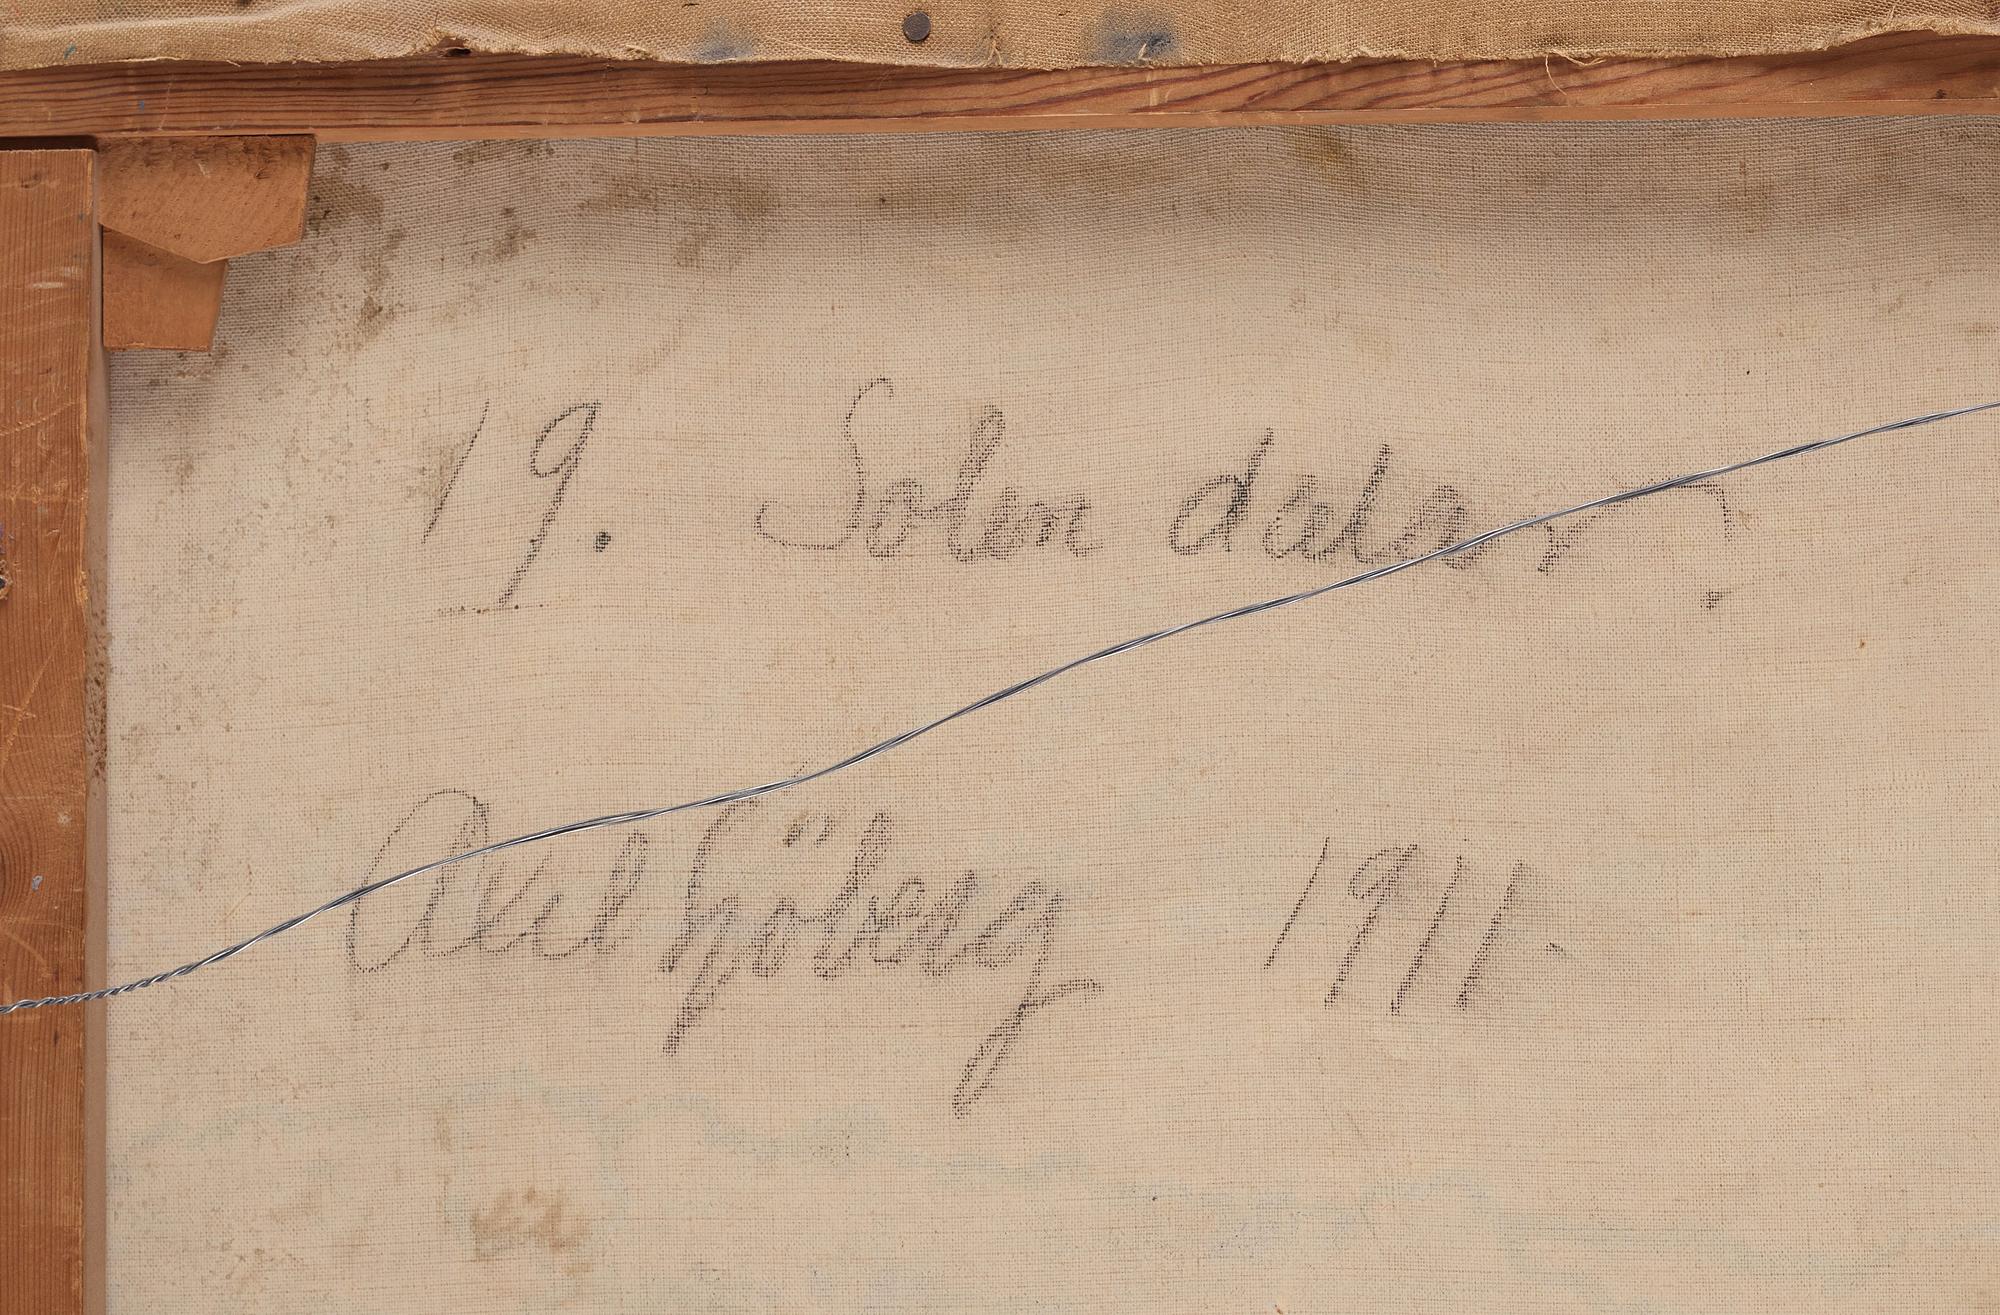 19. Solen dalar
Axel Sjöberg 1911